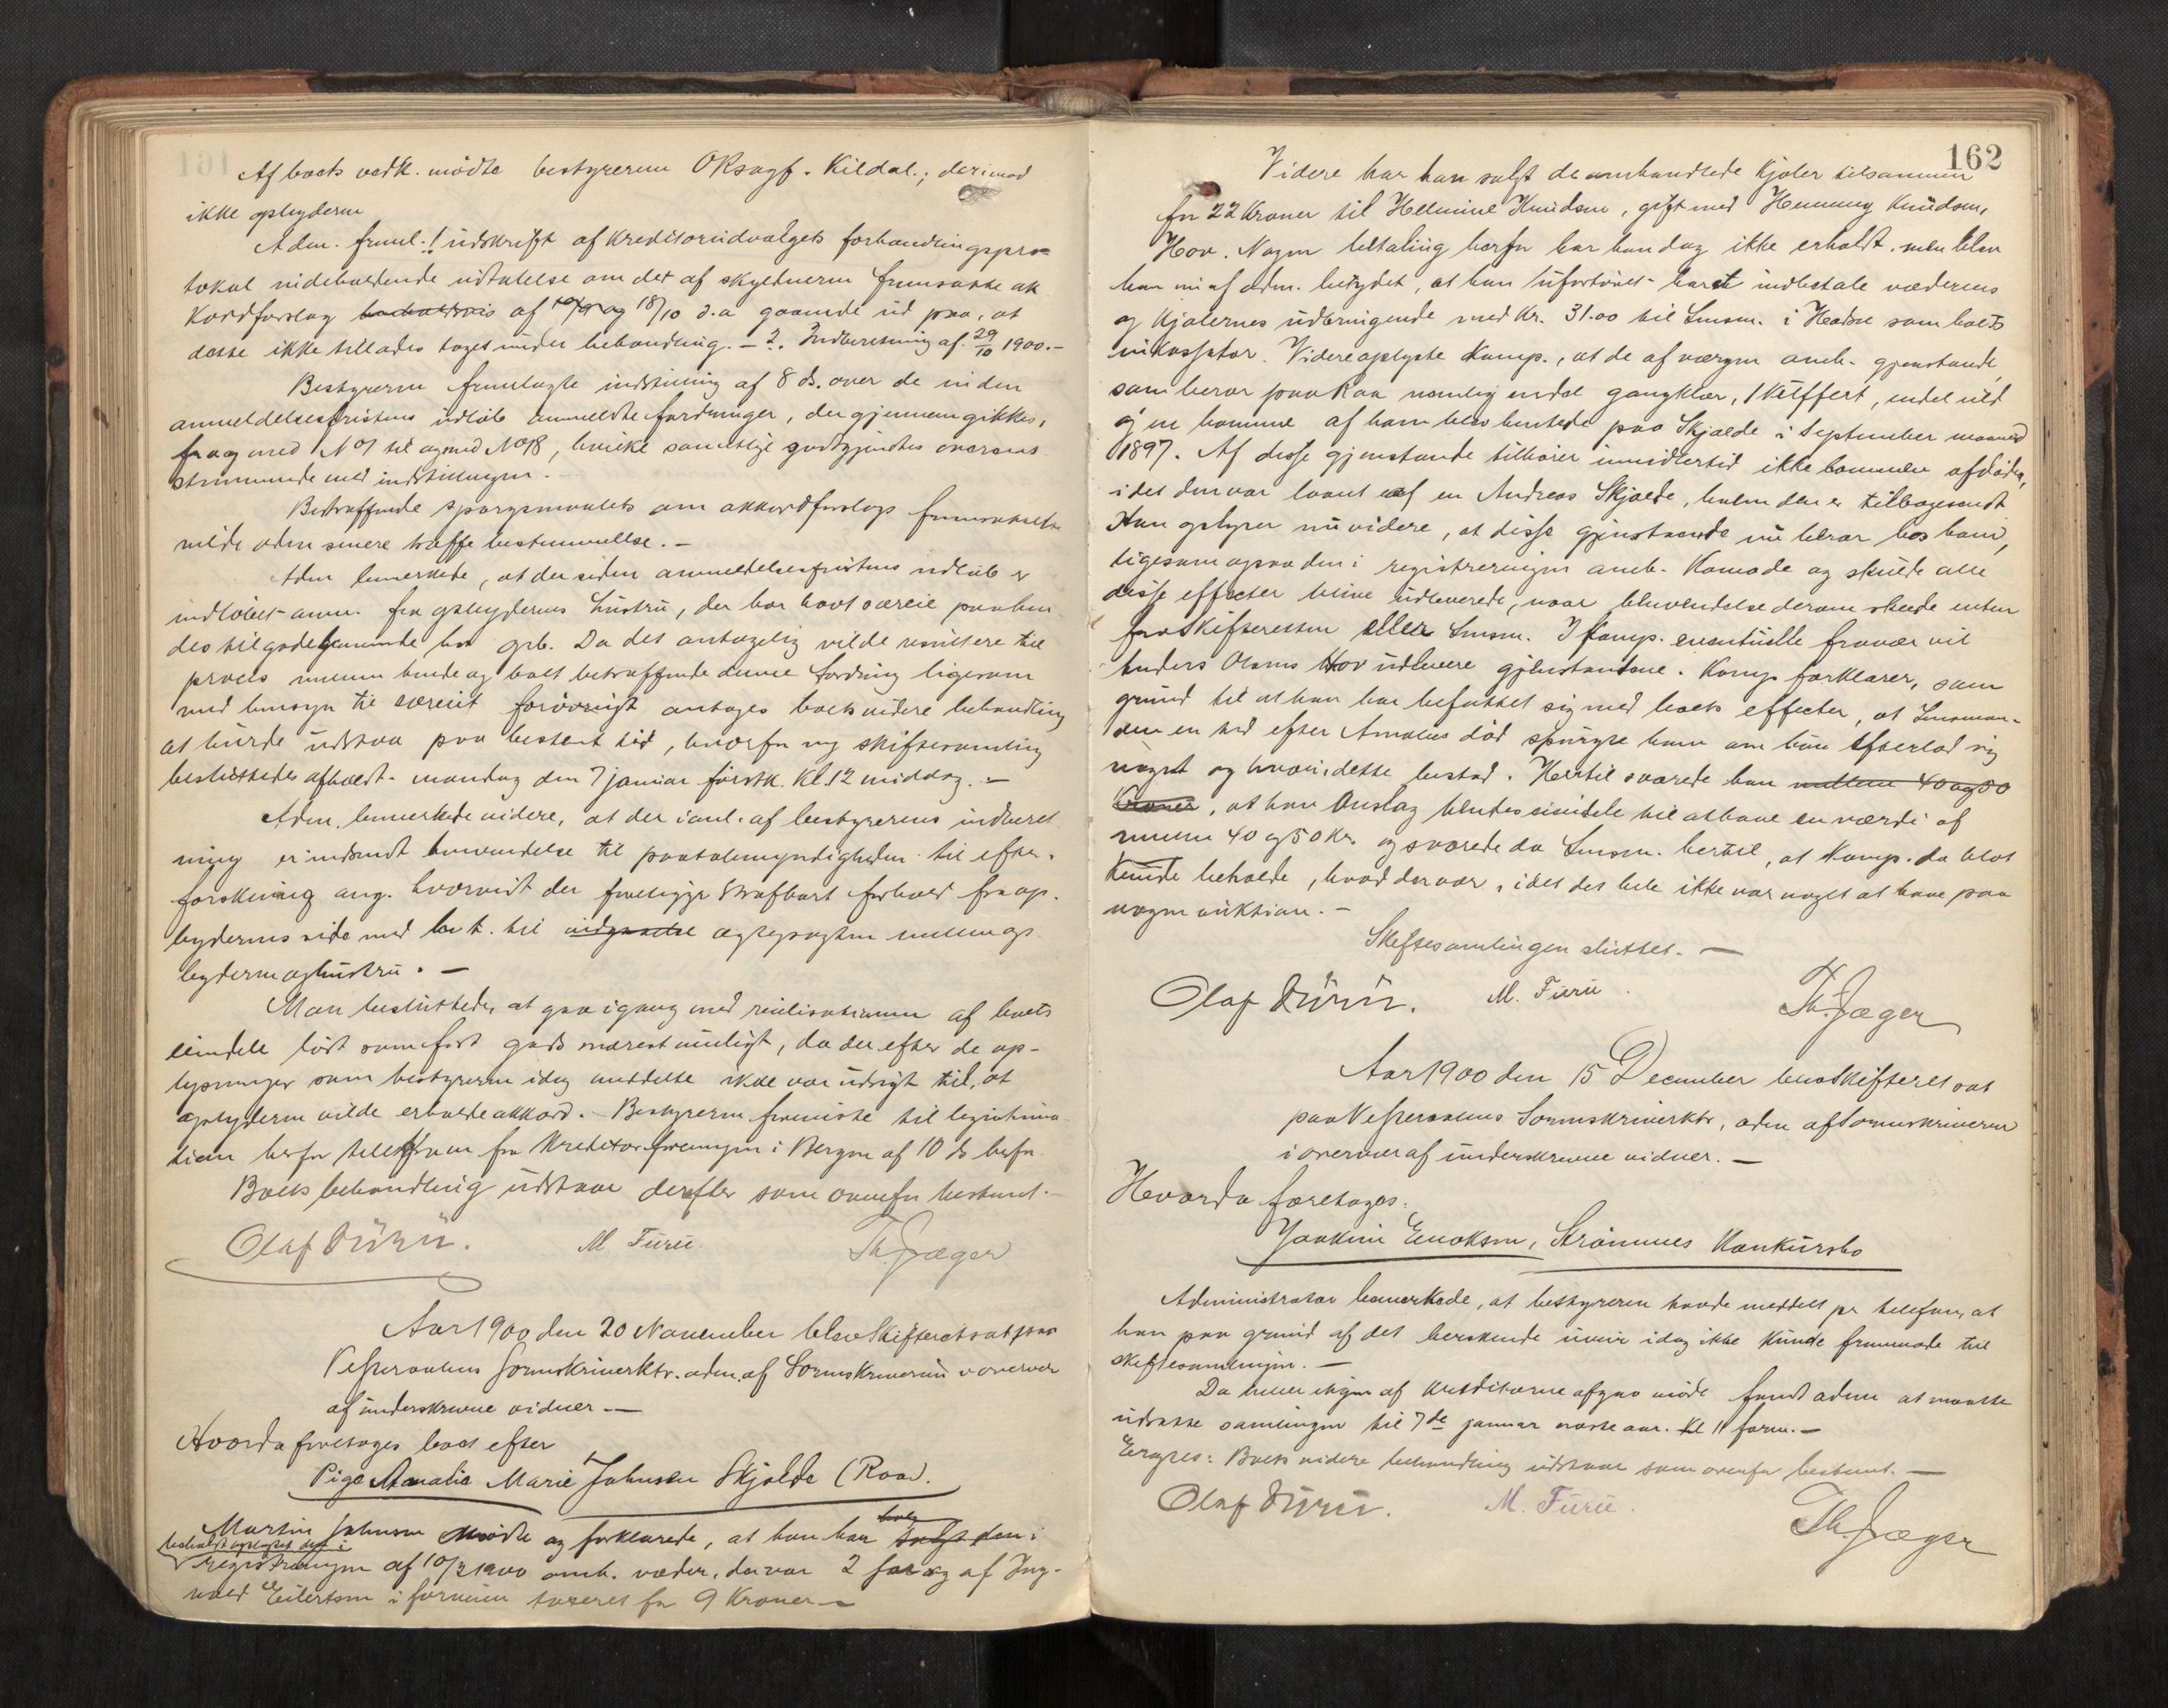 Af boets vedk. mödte bestyreren ORsagf. Kildal.; derimod
ikke opbyderen
Adm. freml. 1 udskrift af Kreditorudvalgets forhandlingspro=
tokol indeholdende udtalelse om det af skyldneren fremsatte ak
kordforslag af og 18/10 d.a gaaende ud paa, at
dette ikke tillades taget under behandling. - 2. Indberetning af 29/10 1900.-
Bestyreren fremlagte indstilling af 8 ds. over de inden
anmeldelsesfristens udløb anmeldte fordringer, der gjennemgikkes,
fra og med No 1 til og med No 18, hvilke samtlige godkjendtes overens
stemmende med indstillingen.
Betræffende spørgsmaalet om akkordforslags fremsættelse
vilde adm senere træffe bestemmelse. -
Adm bemerkede, at der siden anmeldelsesfristens udløb er
indløbet anm. fra opbyderens hustru, der har havt særeie paa hen
des tilgodehavende hos grb. Da det antagelig vilde resultere til
proces mellem hende og boet betræffende denne fordring ligesom
med hensyn til særeiet forøvrigt antages boets videre behandling
at burde udstaa paa bestemt tid, hvorfor ny skiftesamling
besluttedes afholdt mandag den 7 januar førstk. Kl. 12 middag. -
Adm. bemerkede videre, at der i anl. af bestyrerens indberet
ning er indsendt henvendelse til paatalemyndigheden til efter-
forskning ang. hvorvidt der foreligger strafbart forhold fra op-
byderens side med hen. t. til ægtepagten mellem op
byderen og hustru. -
Man besluttede, at gaa igang med realisationen af boets
eiendele løst som fast gods snarest muligt, da der efter de op-
lysninger som bestyreren idag meddelte ikke var udsigt til, at
opbyderen vilde erholde akkord. - Bestyreren fremviste til legitima
tion herfor telegram fra Kreditorforeningen i Bergen af 10 ds herfor
Boets behandling udstaar derefter som ovenfor bestemt. -
Olaf Furu. M. Furu Th. Jæger
Aar 1900 den 20 November blev Skifteret sat paa
Vesteraalens Sorenskriverktr. adm. af Sorenskriveren i overvær
af underskrevne vidner -
Hvorda foretoges boet efter
Pige Amalie Marie Johnsen Skjolde (Raa).
Martin Johnsen Mødte og forklarede, at han har
registreringen af 10/2 1900 omh. væder, der var 2 faar og af Ing-
vald Eilertsen i forveien taxeret for 9 Kroner -
162
Videre har han solgt de omhandlede Kjoler tilsammen
for 22 Kroner til Hellmine Knudsen, gift med Henning Knudsen,
Hov. Nogen betaling herfor har han dog ikke erholdt. men blev
han nu af adm. betydet, at han ufortøvet har at indbetale væderens
og Kjolernes udbringende med Kr. 31.00 til Lensm. i Hadsel som boets
inkassator. Videre oplyste Komp., at de af værgen omh. gjenstande,
som beror paa Raa nemlig endel gangklær, 1 Kuffert, endel uld
og en komme af ham blev hentede paa Skjolde i September maaned
1897. Af disse gjenstande tilhører imidlertid ikke kommen afdøde,
idet den var laant af en Andreas Skjolde, hvem den er tilbagesendt
Han oplyser nu videre, at disse gjenstande nu beror hos ham,
ligesom ogsaa den i registreringen omh. Komode og skulde alle
disse effecter blive udleverede, naar henvendelse derom skede enten
fra Skifteretten eller Lensm. I komp. eventuelle fravær vil
Anders Olsens Hov udlevere gjenstandene. Komp. forklarer, som
grund til at han har befattet sig med boets effecter, at Lensman-
den en tid efter Amalies død spurgte ham om hun efterlod sig
noget og hvori dette bestod. Hertil svarede han mellem 40 og 50
Kroner, at han Anslog hendes eiendele til at have en værdi af
mellem 40 og 50 Kr. og svarede da Lensm. hertil, at Komp. da blot
Kunde beholde, hvad der var, idet det hele ikke var noget at have paa
nogen auktion. -
Skiftesamlingen sluttet. -
Olaf Furu. M. Furu. Th. Jæger
Aar 1900 den 15 December blev Skifteret sat
paa Vesteraalens Sorenskriverktr, adm af Sorenskriveren
i overvær af underskrevne vidner. -
Hvorda foretoges:
Joakim Enoksen, Strømmes Konkursbo
Administrator bemerkede, at bestyreren havde meddelt pr telefon, at
han paa grund af det herskende uveir idag ikke Kunde fremmøde til
skiftesamlingen. -
Da heller ingen af Kreditorerne afgav møde fandt adm at maatte
udsætte samlingen til 7de januar næste aar. Kl 11 form. -
Eragtes: Boets videre behandling udstaar som ovenfor bestemt. -
Olaf Furu. M. Furu. Th. Jæger